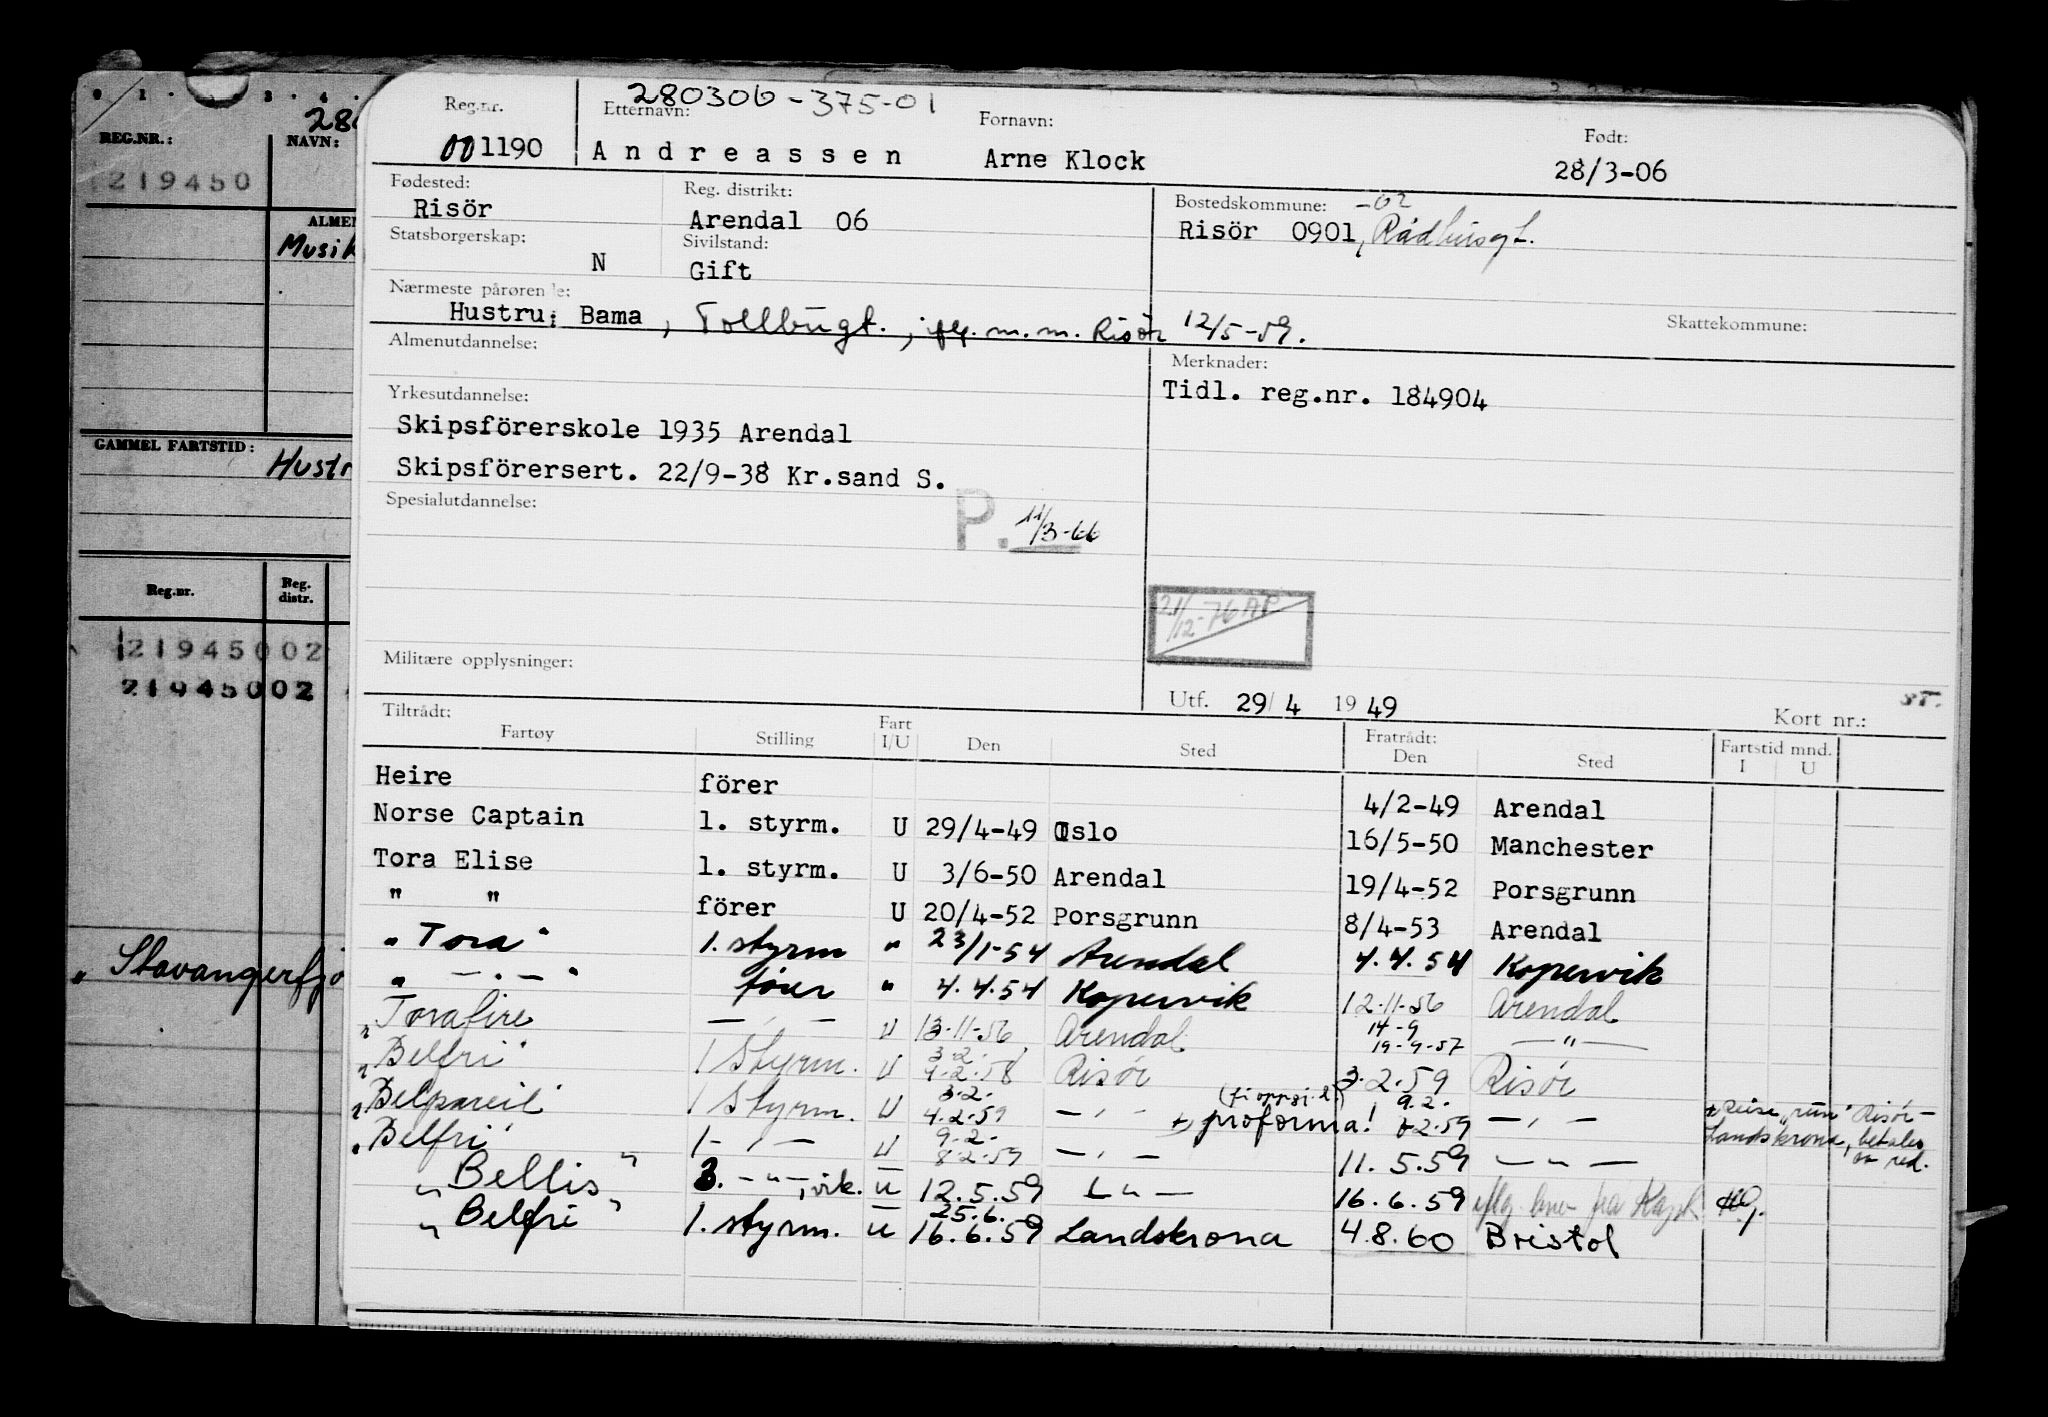 0 1 . 3 . 4 .
28
REG.NR.:
NAVN:
219450
ALMEN
Musik
GAMMEL FARTSTID:
Hustr
Reg.nr.
Reg. distr.
21945002
21945002
„ Stavangerfjo
280306-375-01
Reg.nr. Etternavn: Fornavn: Født:
001190 Andreassen Arne Klock 28/3-06
Fødested: Reg. distrikt: Bostedskommune: -02
Risör Arendal 06 Risör 0901, Rådhusgt.
Statsborgerskap: Sivilstand:
N Gift
Nærmeste pårørende:
Hustru: Bama, Tollbugt., iflg. m.m. Risör 12/5-59.
Skattekommune:
Almenutdannelse: Merknader:
Tidl. reg.nr. 184904
Yrkesutdannelse:
Skipsförerskole 1935 Arendal
Skipsförersert. 22/9-38 Kr.sand S.
Spesialutdannelse:
P. 11/3-66
21/12-76 AP
Militære opplysninger:
Utf. 29/4 1949 Kort nr.:
Tiltrådt: Fratrådt:
Fartøy Stilling Fart I/U Den Sted Den Sted Fartstid mnd. I U
Heire förer 4/2-49 Arendal
Norse Captain 1. styrm. U 29/4-49 Oslo 16/5-50 Manchester
Tora Elise 1. styrm. U 3/6-50 Arendal 19/4-52 Porsgrunn
" " förer U 20/4-52 Porsgrunn 8/4-53 Arendal
„ Tora" 1. styrm " 23/1-54 Arendal 4.4.54 Kopervik
„ — . — " förer " 4.4.54 Kopervik 12-11-56 Arendal
„ Torafire — " — U 13-11-56 Arendal 14-9 19-9-57 — " —
„ Belfri" 1 Styrm. U 3.2. 4-2-58 Risör 3.2.59 Risör
„ Belpareil" 1 Styrm. U 3.2. 4.2.59 — " — + proforma! 9.2. 2.59 — " — + Reise „run" Risör-Landskrona, betales
„ Belfri" 1 — " — U 9.2. 8.2.59 — " — 11.5.59 — " —
„ Bellis" 3. — " —, vik. U 12.5.59 — " — 16.6.59
„ Belfri" 1. styrm. U 25.6. 16.6.59 Landskrona 4.8.60 Bristol